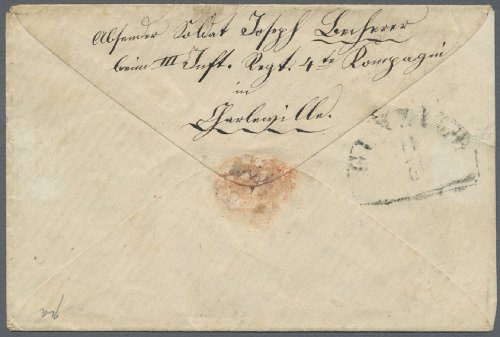 Absender Soldat Joseph Lecherer
beim III Inft. Regt. 4te Kompagni
in
Charleville.